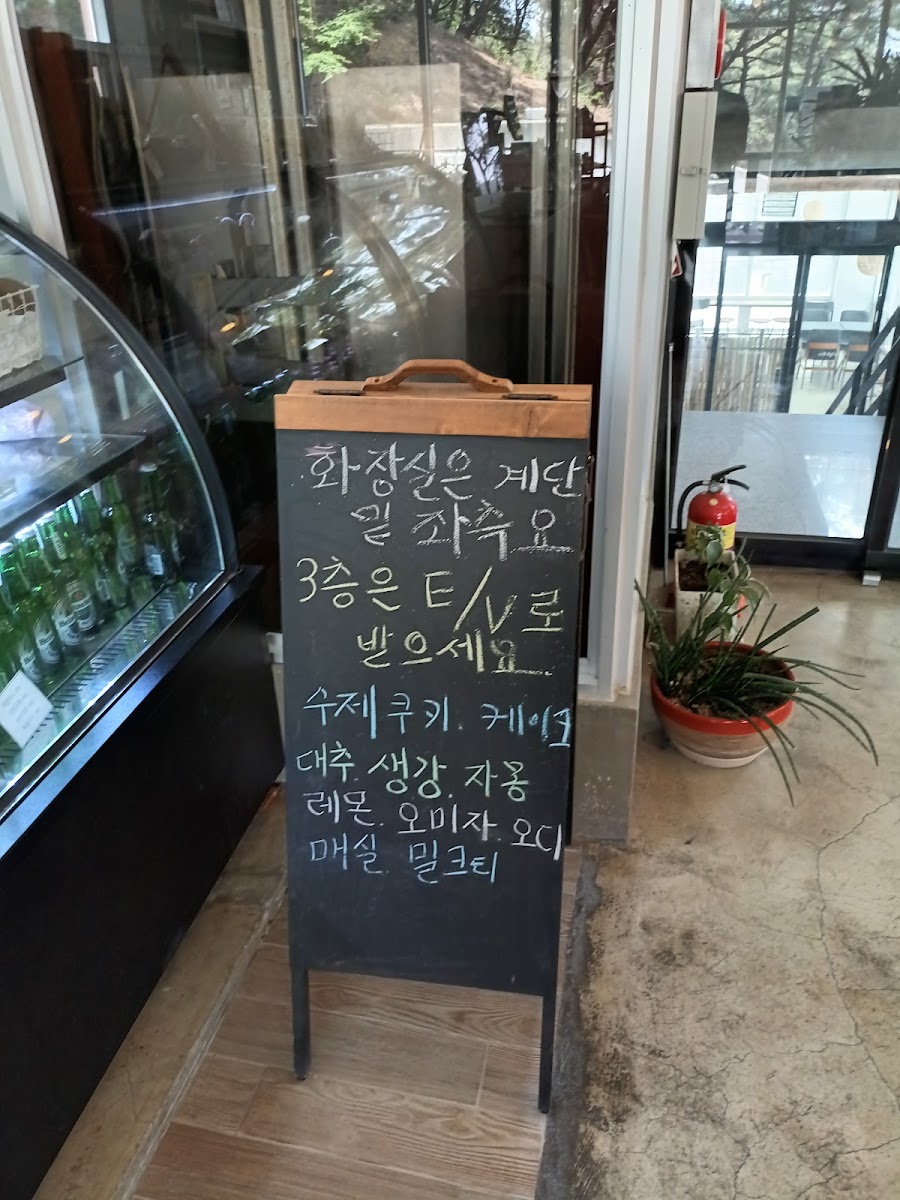 화장실은 계단
밑 좌측요
3층은 E/V로
받으세요
수제쿠키. 케이크
대추. 생강. 자몽
레몬. 오미자. 오디
매실. 밀크티